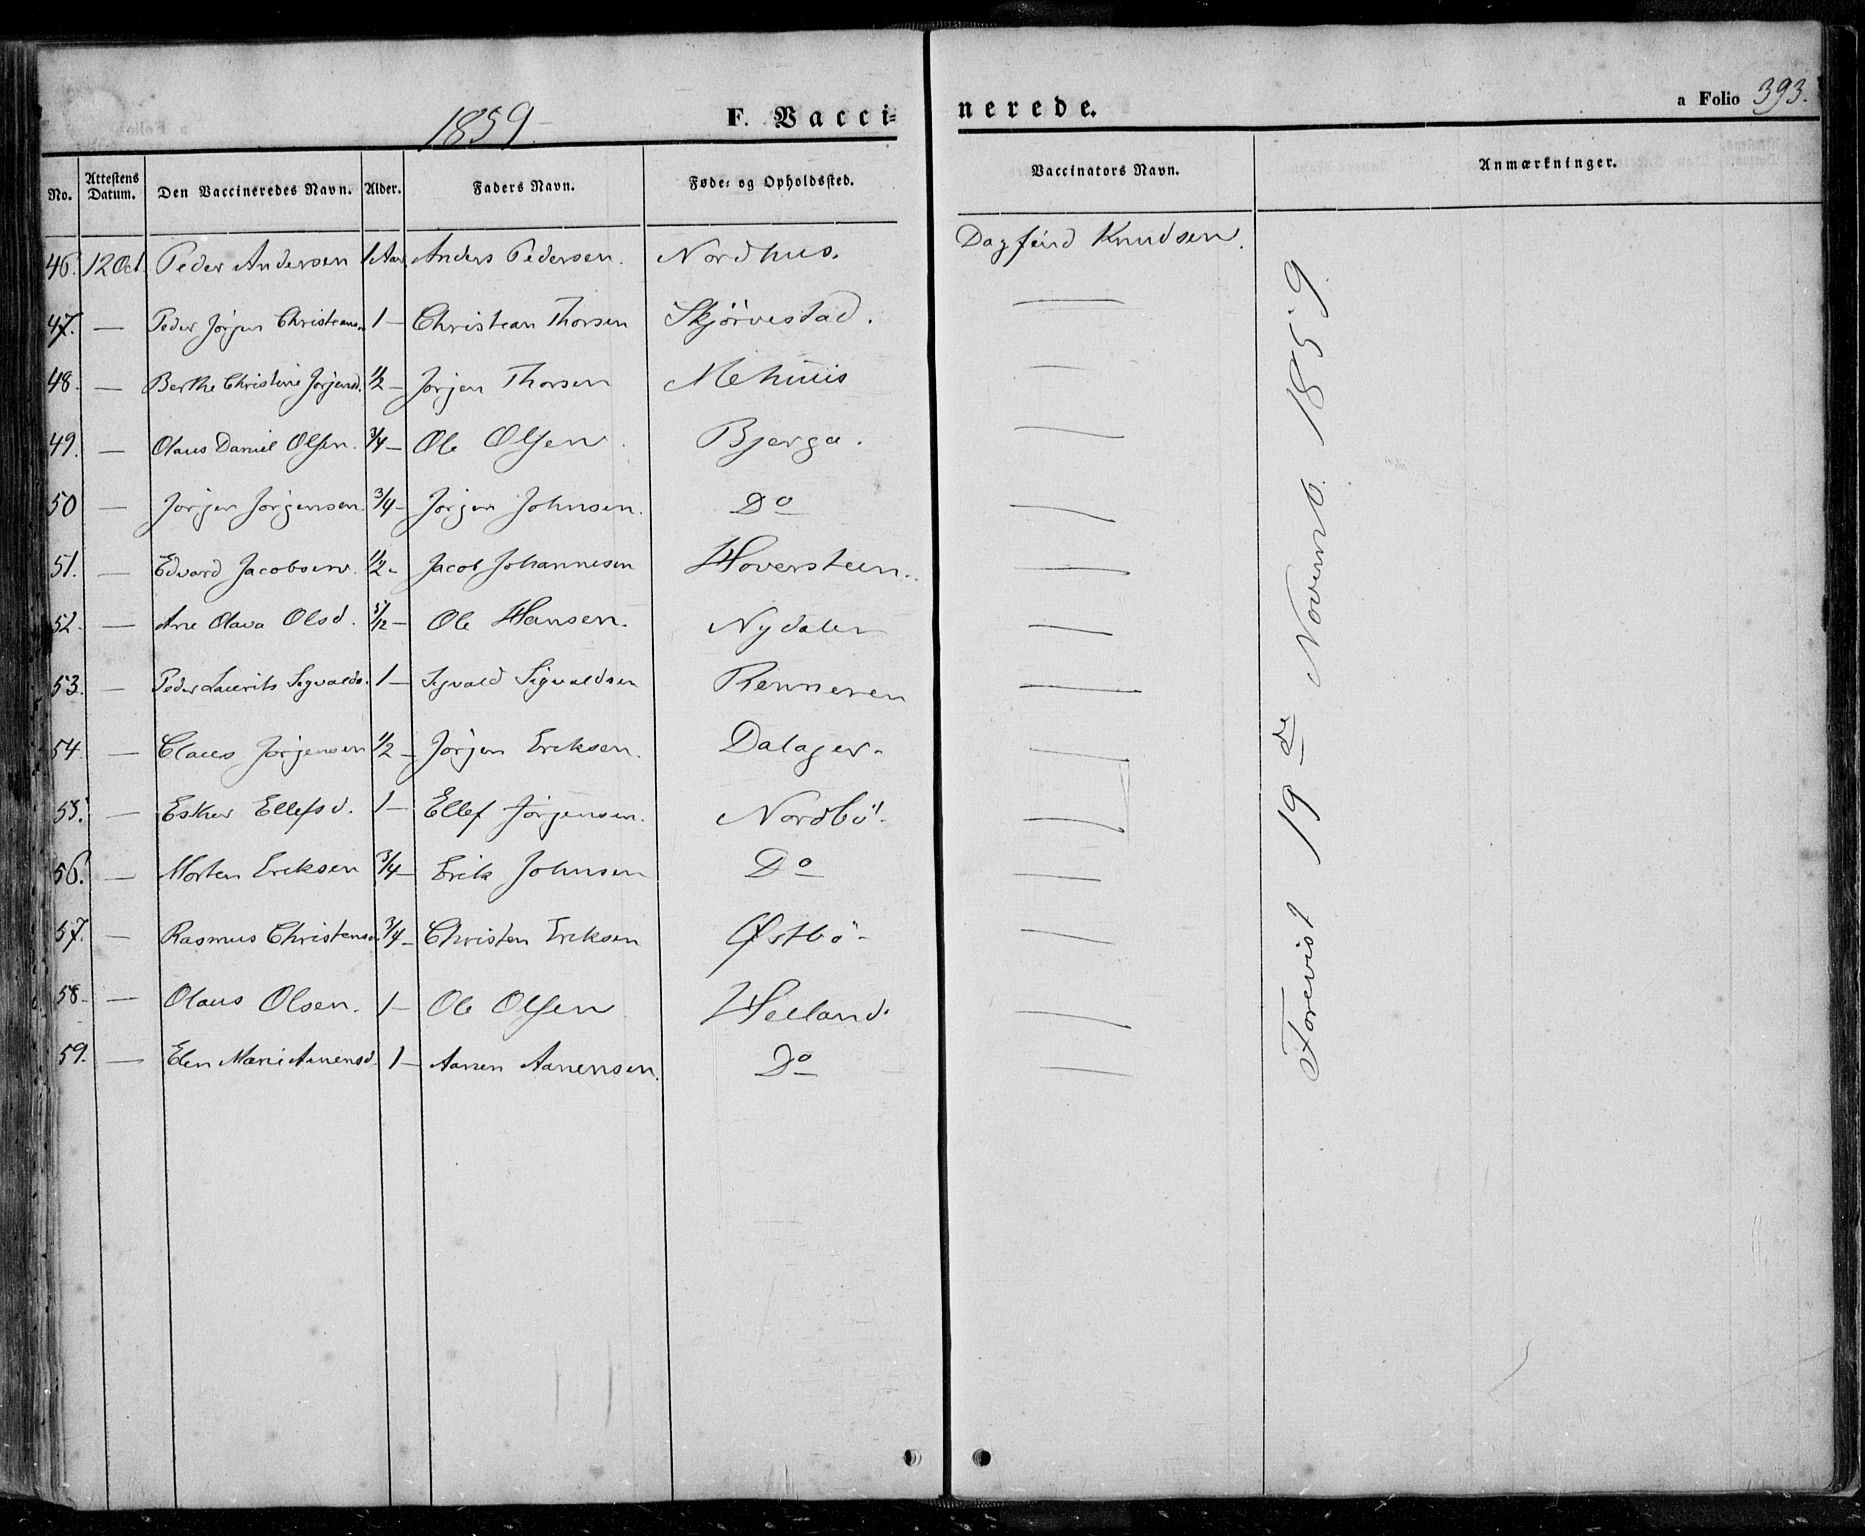 1859
F. Vacci= nerede.
a Folio 393.
No. Attestens Datum. Den Vaccineredes Navn. Alder. Faders Navn. Føde= og Opholdssted. Vaccinators Navn. Anmærkninger.
46. 12 Oct. Peder Andersen 1 Aar Anders Pedersen. Nordhus. Dagfind Knudsen.
47. — Peder Jörgen Christians. 1 — Christian Thorsen Skjörvestad. —
48. — Berthe Christine Jörgensd. 1/2 — Jörgen Thorsen Mehuus —
49. — Olaus Daniel Olsen. 3/4 — Ole Olsen. Bjerga. —
50 — Jörgen Jörgensen 3/4 — Jörgen Johnsen. Do —
51. — Edvard Jacobsen. 1/2 - Jacob Johannesen Hoversteen. —
52. — Ane Olava Olsd. 5/12 — Ole Hansen. Nydalen —
53. — Peder Laurits Sigvalds. 1 — Sigvald Sigvaldsen Renneren —
54. — Claus Jörgensen 1/2 — Jörgen Eriksen. Dalager. —
55. — Esther Ellefsd. 1 — Ellef Jörgensen. Nordbö. —
56. — Morten Eriksen 3/4 — Erik Johnsen Do —
57. — Rasmus Christens. 3/4 — Christen Eriksen Østbö — —
58. — Olaus Olsen. 1 — Ole Olsen Helland. —
59. — Elen Marie Aanensd. 1 — Aanen Aanensen. Do —
Forevist 19de Novemb. 1859.